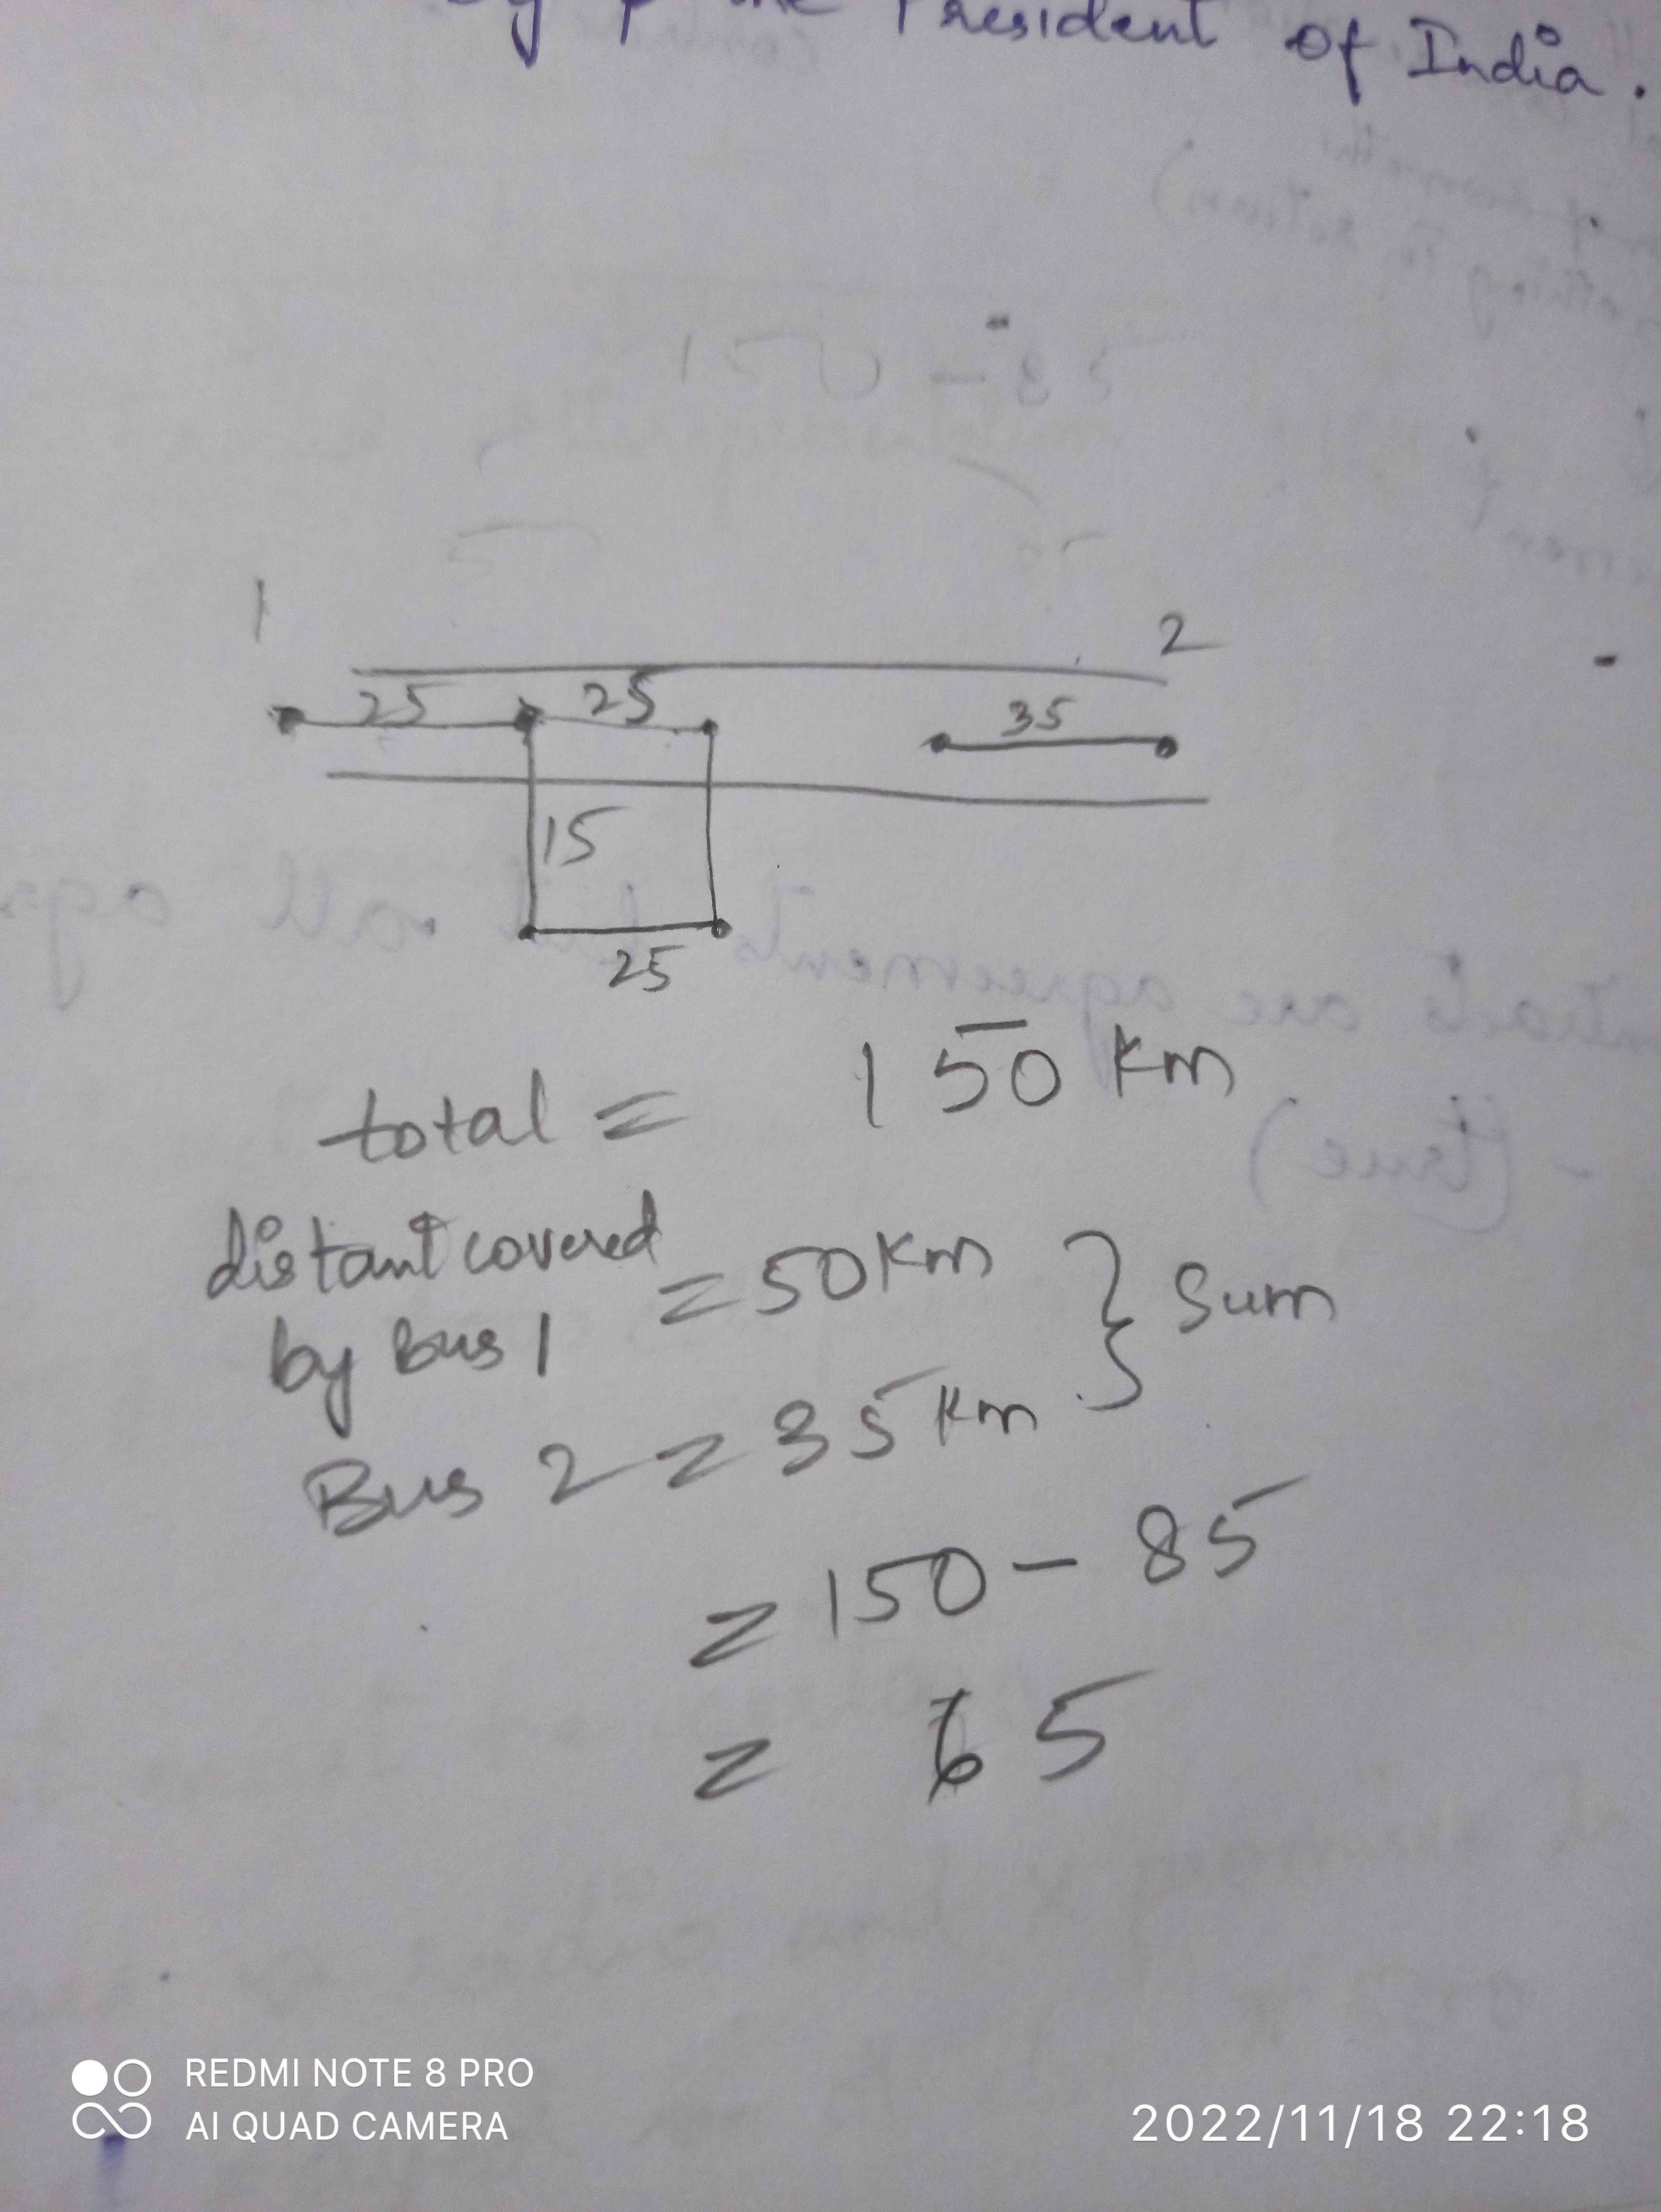 the President of India.
1
2
25 25 35
15
25
total = 150 km
distant covered
by bus 1 = 50 km } Sum
Bus 2 = 35 km
= 150 - 85
= 65
REDMI NOTE 8 PRO
AI QUAD CAMERA
2022/11/18 22:18